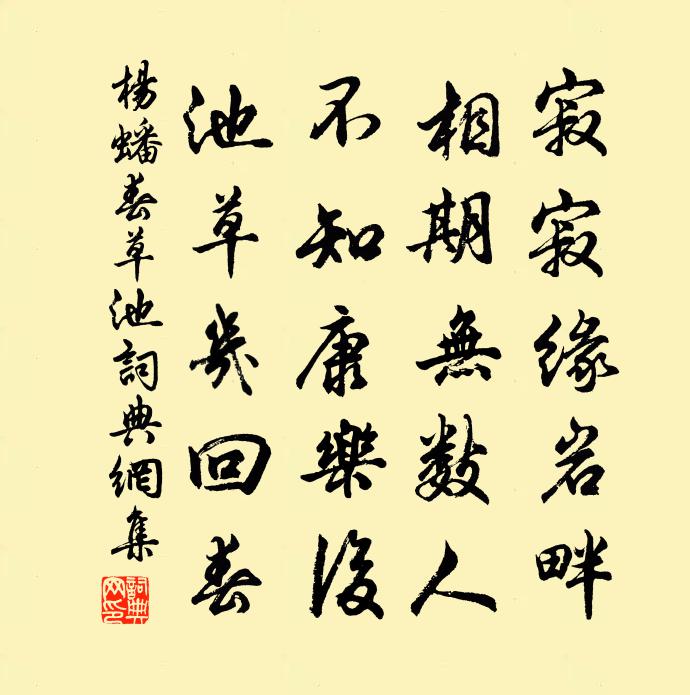 寂寂缘岩畔
相期無數人
不知康樂後
池草幾回春
楊蟠春草池詞典網集
詞典網印